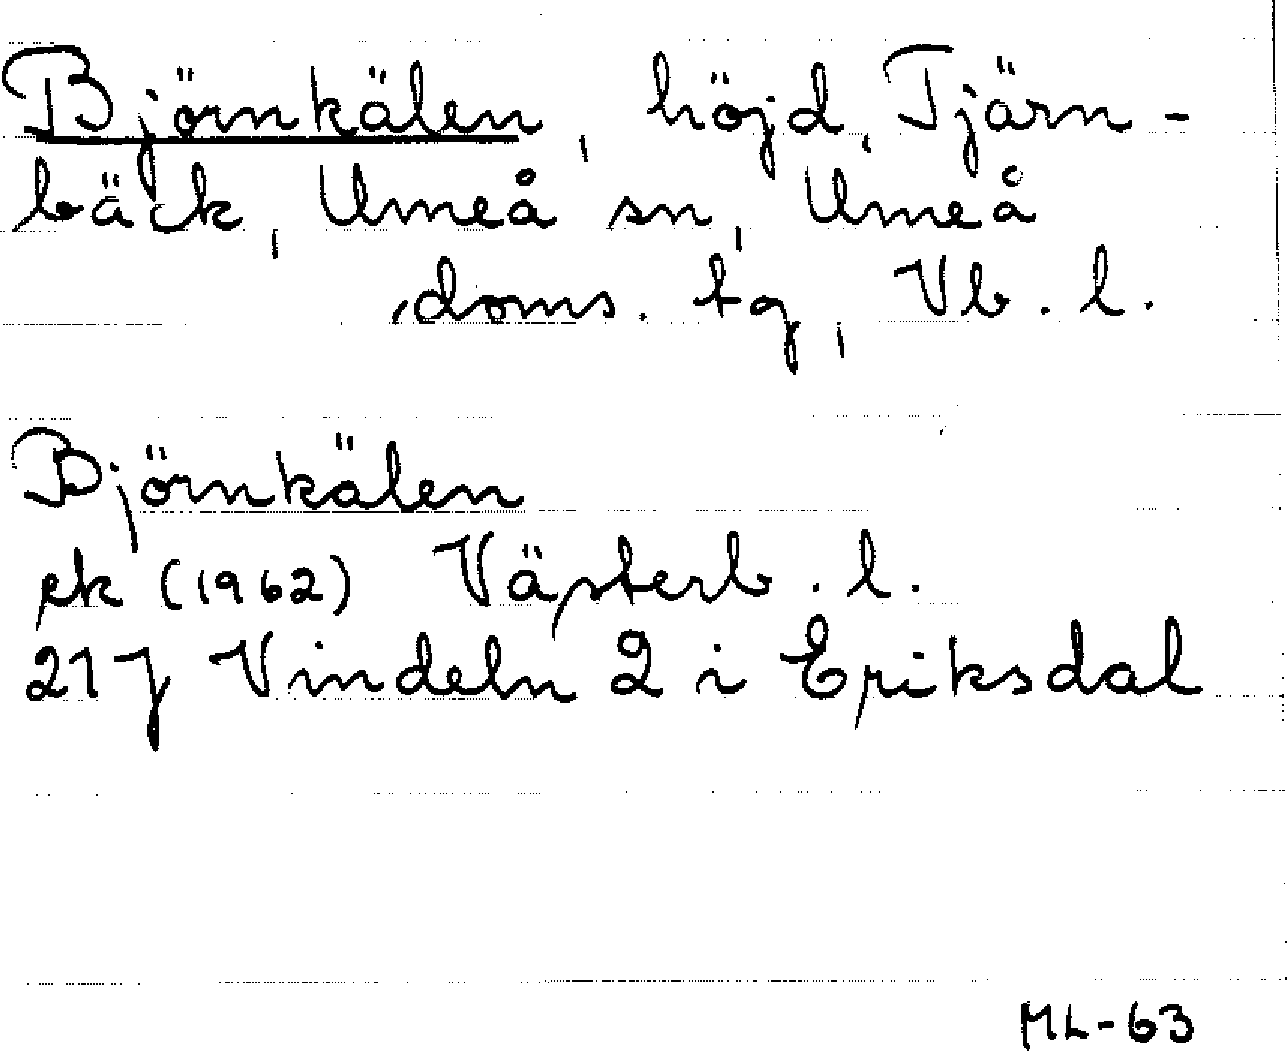 Björnkälen, höjd, Tjärn-
bäck, Umeå sn, Umeå
doms. tg, Vb. l.
Björnkälen
ek (1962) Västerb. l.
21 J Vindeln 2 i Eriksdal
ML-63